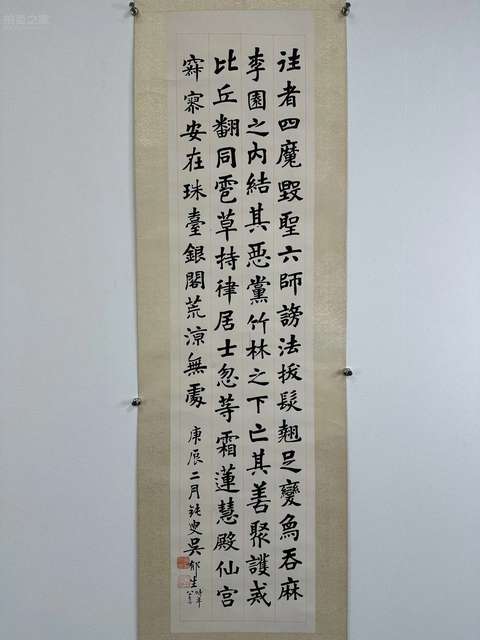 往者四魔毀聖六師謗法拔髮翹足變象吞麻
李園之內結其惡黨竹林之下亡其善聚護戒
比丘翻同雹草持律居士忽等霜蓮慧殿仙宮
寂寥安在珠臺銀閣荒涼無處
庚辰二月鈍叟吳郁生時年